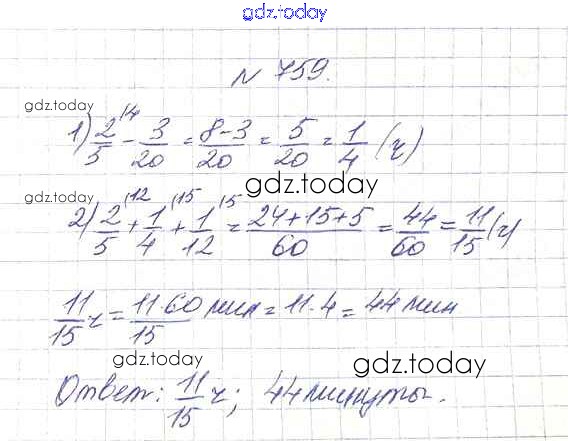 gdz.today
N 759.
gdz.today
1) 2/5 (4 - 3/20 = 8-3/20 = 5/20 = 1/4 (ч)
gdz.today
gdz.today
2) 2/5 (12 + 1/4 (15 + 1/12 (5 = 24+15+5/60 = 44/60 = 11/15 (ч)
11/15 ч = 11·60/15 мин = 11·4 = 44 мин
gdz.today
gdz.today
Ответ: 11/15 ч; 44 минуты.